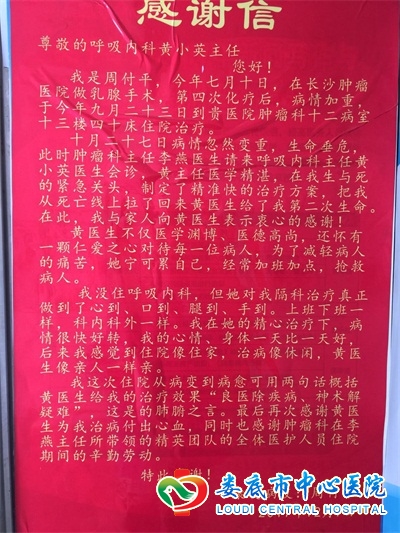 感谢信
尊敬的呼吸内科黄小英主任
，您好！
我是周付平，今年七月十日，在长沙肿瘤
医院做乳腺手术，第四次化疗后，病情加重，
于今年九月二十三日到贵医院肿瘤科十二病室
十三楼四十床住院治疗。
十月二十七日病情忽然变重，生命垂危，
此时肿瘤科主任李燕医生请来呼吸内科主任黄
小英医生会诊，黄主任医学精湛，在我生与死
的紧急关头，制定了精准快的治疗方案，把我
从死亡线上拉了回来黄医生给了我第二次生命。
在此，我与家人向黄医生表示衷心的感谢！
黄医生不仅医学渊博、医德高尚，还怀有
一颗仁爱之心对待每一位病人，为了减轻病人
的痛苦，她宁可累自己，经常加班加点，抢救
病人。
我没住呼吸内科，但她对我隔科治疗真正
做到了心到、口到、腿到、手到。上班下班一
样，科内科外一样。我在她的精心治疗下，病
情很快好转，我的心情、身体一天比一天好，
后来我感觉到住院像住家，治病像休闲，黄医
生像亲人一样亲。
我这次住院从病变到病愈可用两句话概括
黄医生给我的治疗效果“良医除疾病、神术解
疑难”，这是的肺腑之言。最后再次感谢黄医
生为我治病付出心血，同时也感谢肿瘤科在李
燕主任所带领的精英团队的全体医护人员住院
期间的辛勤劳动。
特此
谢！
娄底市中心医院
LOUDI CENTRAL HOSPITAL